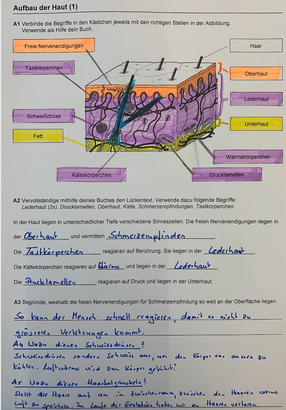 Aufbau der Haut (1)
A1 Verbinde die Begriffe in den Kästchen jeweils mit den richtigen Stellen in der Abbildung.
Verwende als Hilfe dein Buch.
Freie Nervenendigungen
Haar
Tastkörperchen
Oberhaut
Lederhaut
Schweißdrüse
Unterhaut
Fett
Wärmekörperchen
Kältekörperchen
Drucklamellen
A2 Vervollständige mithilfe deines Buches den Lückentext. Verwende dazu folgende Begriffe:
Lederhaut (2x), Drucklamellen, Oberhaut, Kälte, Schmerzempfindungen, Tastkörperchen
In der Haut liegen in unterschiedlicher Tiefe verschiedene Sinneszellen. Die freien Nervenendigungen liegen in
der Oberhaut und vermitteln Schmerzempfinden
Die Tastkörperchen reagieren auf Berührung. Sie liegen in der Lederhaut
Die Kältekörperchen reagieren auf Wärme und liegen in der Lederhaut
Die Drucklamellen reagieren auf Druck und liegen in der Unterhaut.
A3 Begründe, weshalb die freien Nervenendigungen für Schmerzempfindung so weit an der Oberfläche liegen.
So kann der Mensch schnell reagieren, damit es nicht zu
grösseren Verletzungen kommt.
A4 Wozu dienen Schweissdrüsen?
Schweissdrüsen sondern Schweiss aus, um den Körper von aussen zu
kühlen. wird der Körper gekühlt!
A5 Wozu dienen Haarbalgmuskeln?
Stellt die Haare auf um in Zwischenraum zwischen den Haaren warme
Luft zu speichern. Im Laufe der Evolution haben wir an Haaren verloren.